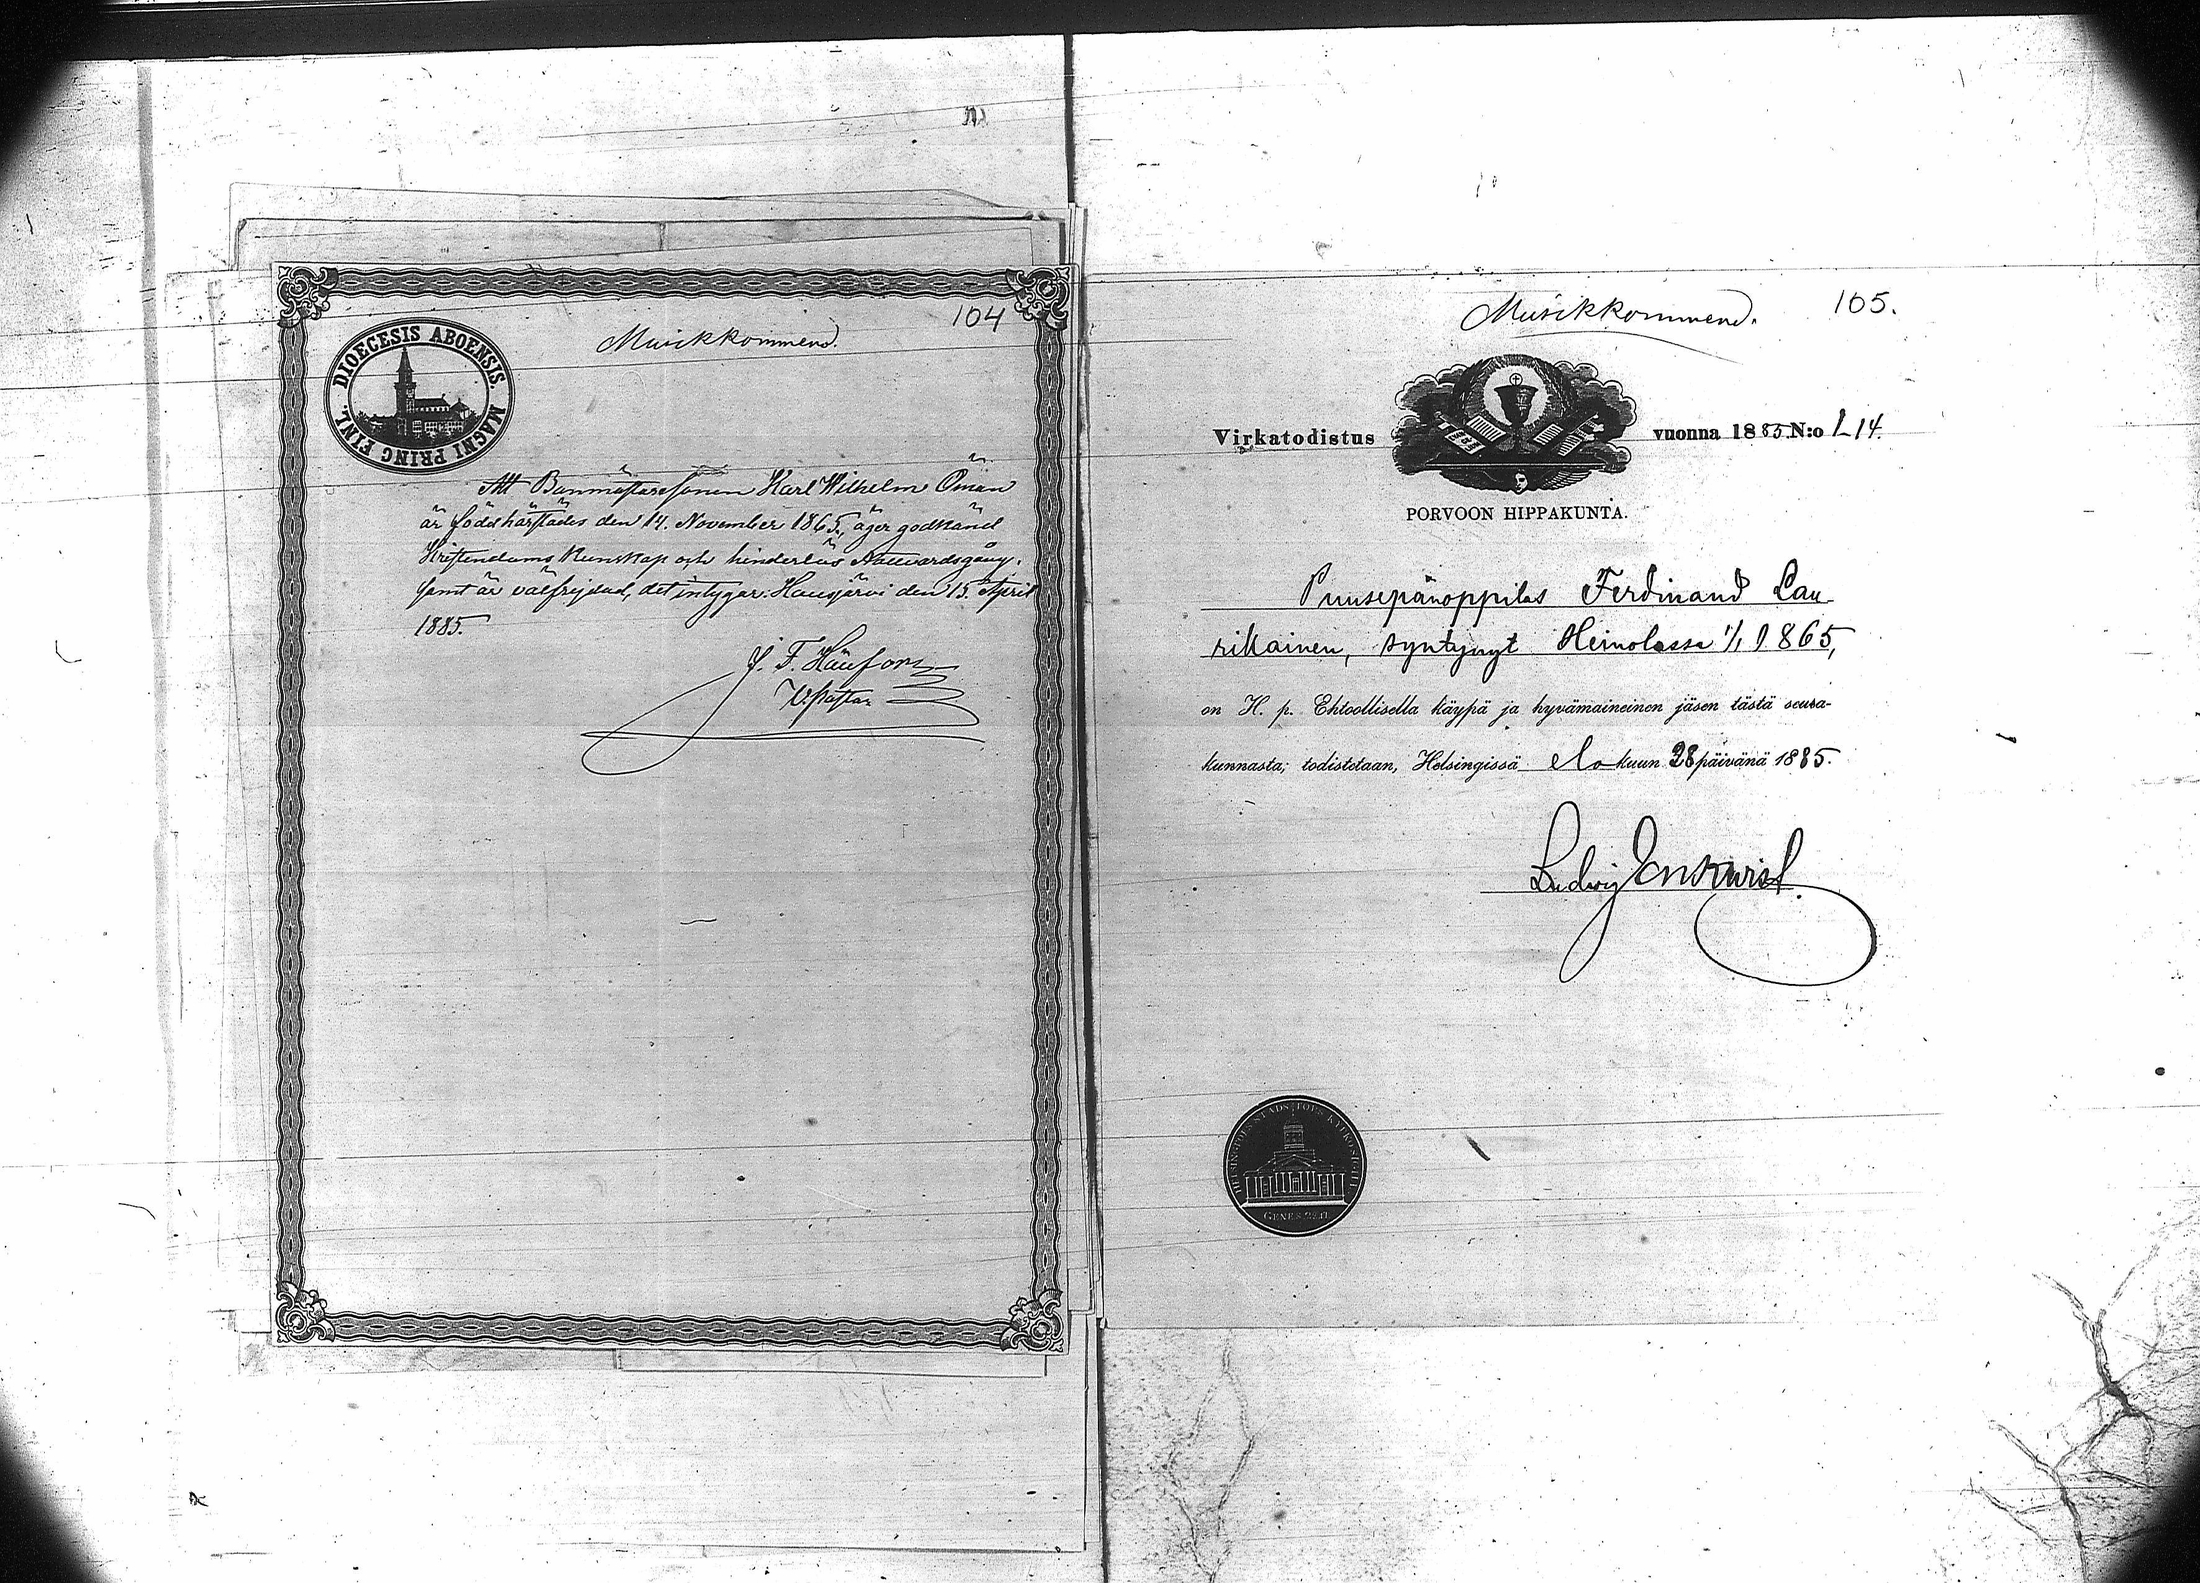 104
Musikkommend.
DIOECESIS ABOENSIS. MAGNI PRINC FINL.
Att Banmästaresonen Karl Wilhelm Öman
är född härstädes den 14. November 1865, äger godkänd
Kristendoms kunskap och hinderlös Nattvardsgång,
samt är välfrejdad, det intygar: Hausjärvi den 15 April
1885.
J. F.
V. pastor
105.
Musikkommend.
Virkatodistus vuonna 1885 N:o L 14.
PORVOON HIPPAKUNTA.
Puusepänoppilas Ferdinand Lau-
rikainen, syntynyt Heinolassa 1/1 1865,
on H. p. Ehtoollisella käypä ja hyvämaineinen jäsen tästä seura-
kunnasta; todistetaan, Helsingissä elokuun 28 päivänä 1885.
Ludvig
HELSINGFORS STADS
GENES.